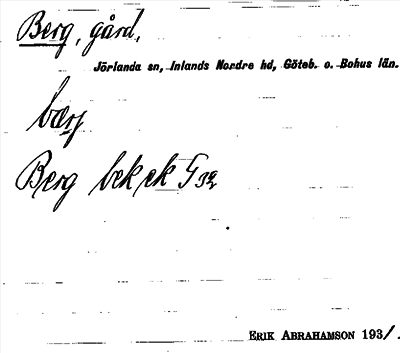 Berg, gård,
Jörlanda sn, Inlands Nordre hd, Göteb. o. Bohus län.
bærj
Berg bek ek G 32
ERIK ABRAHAMSON 193/.